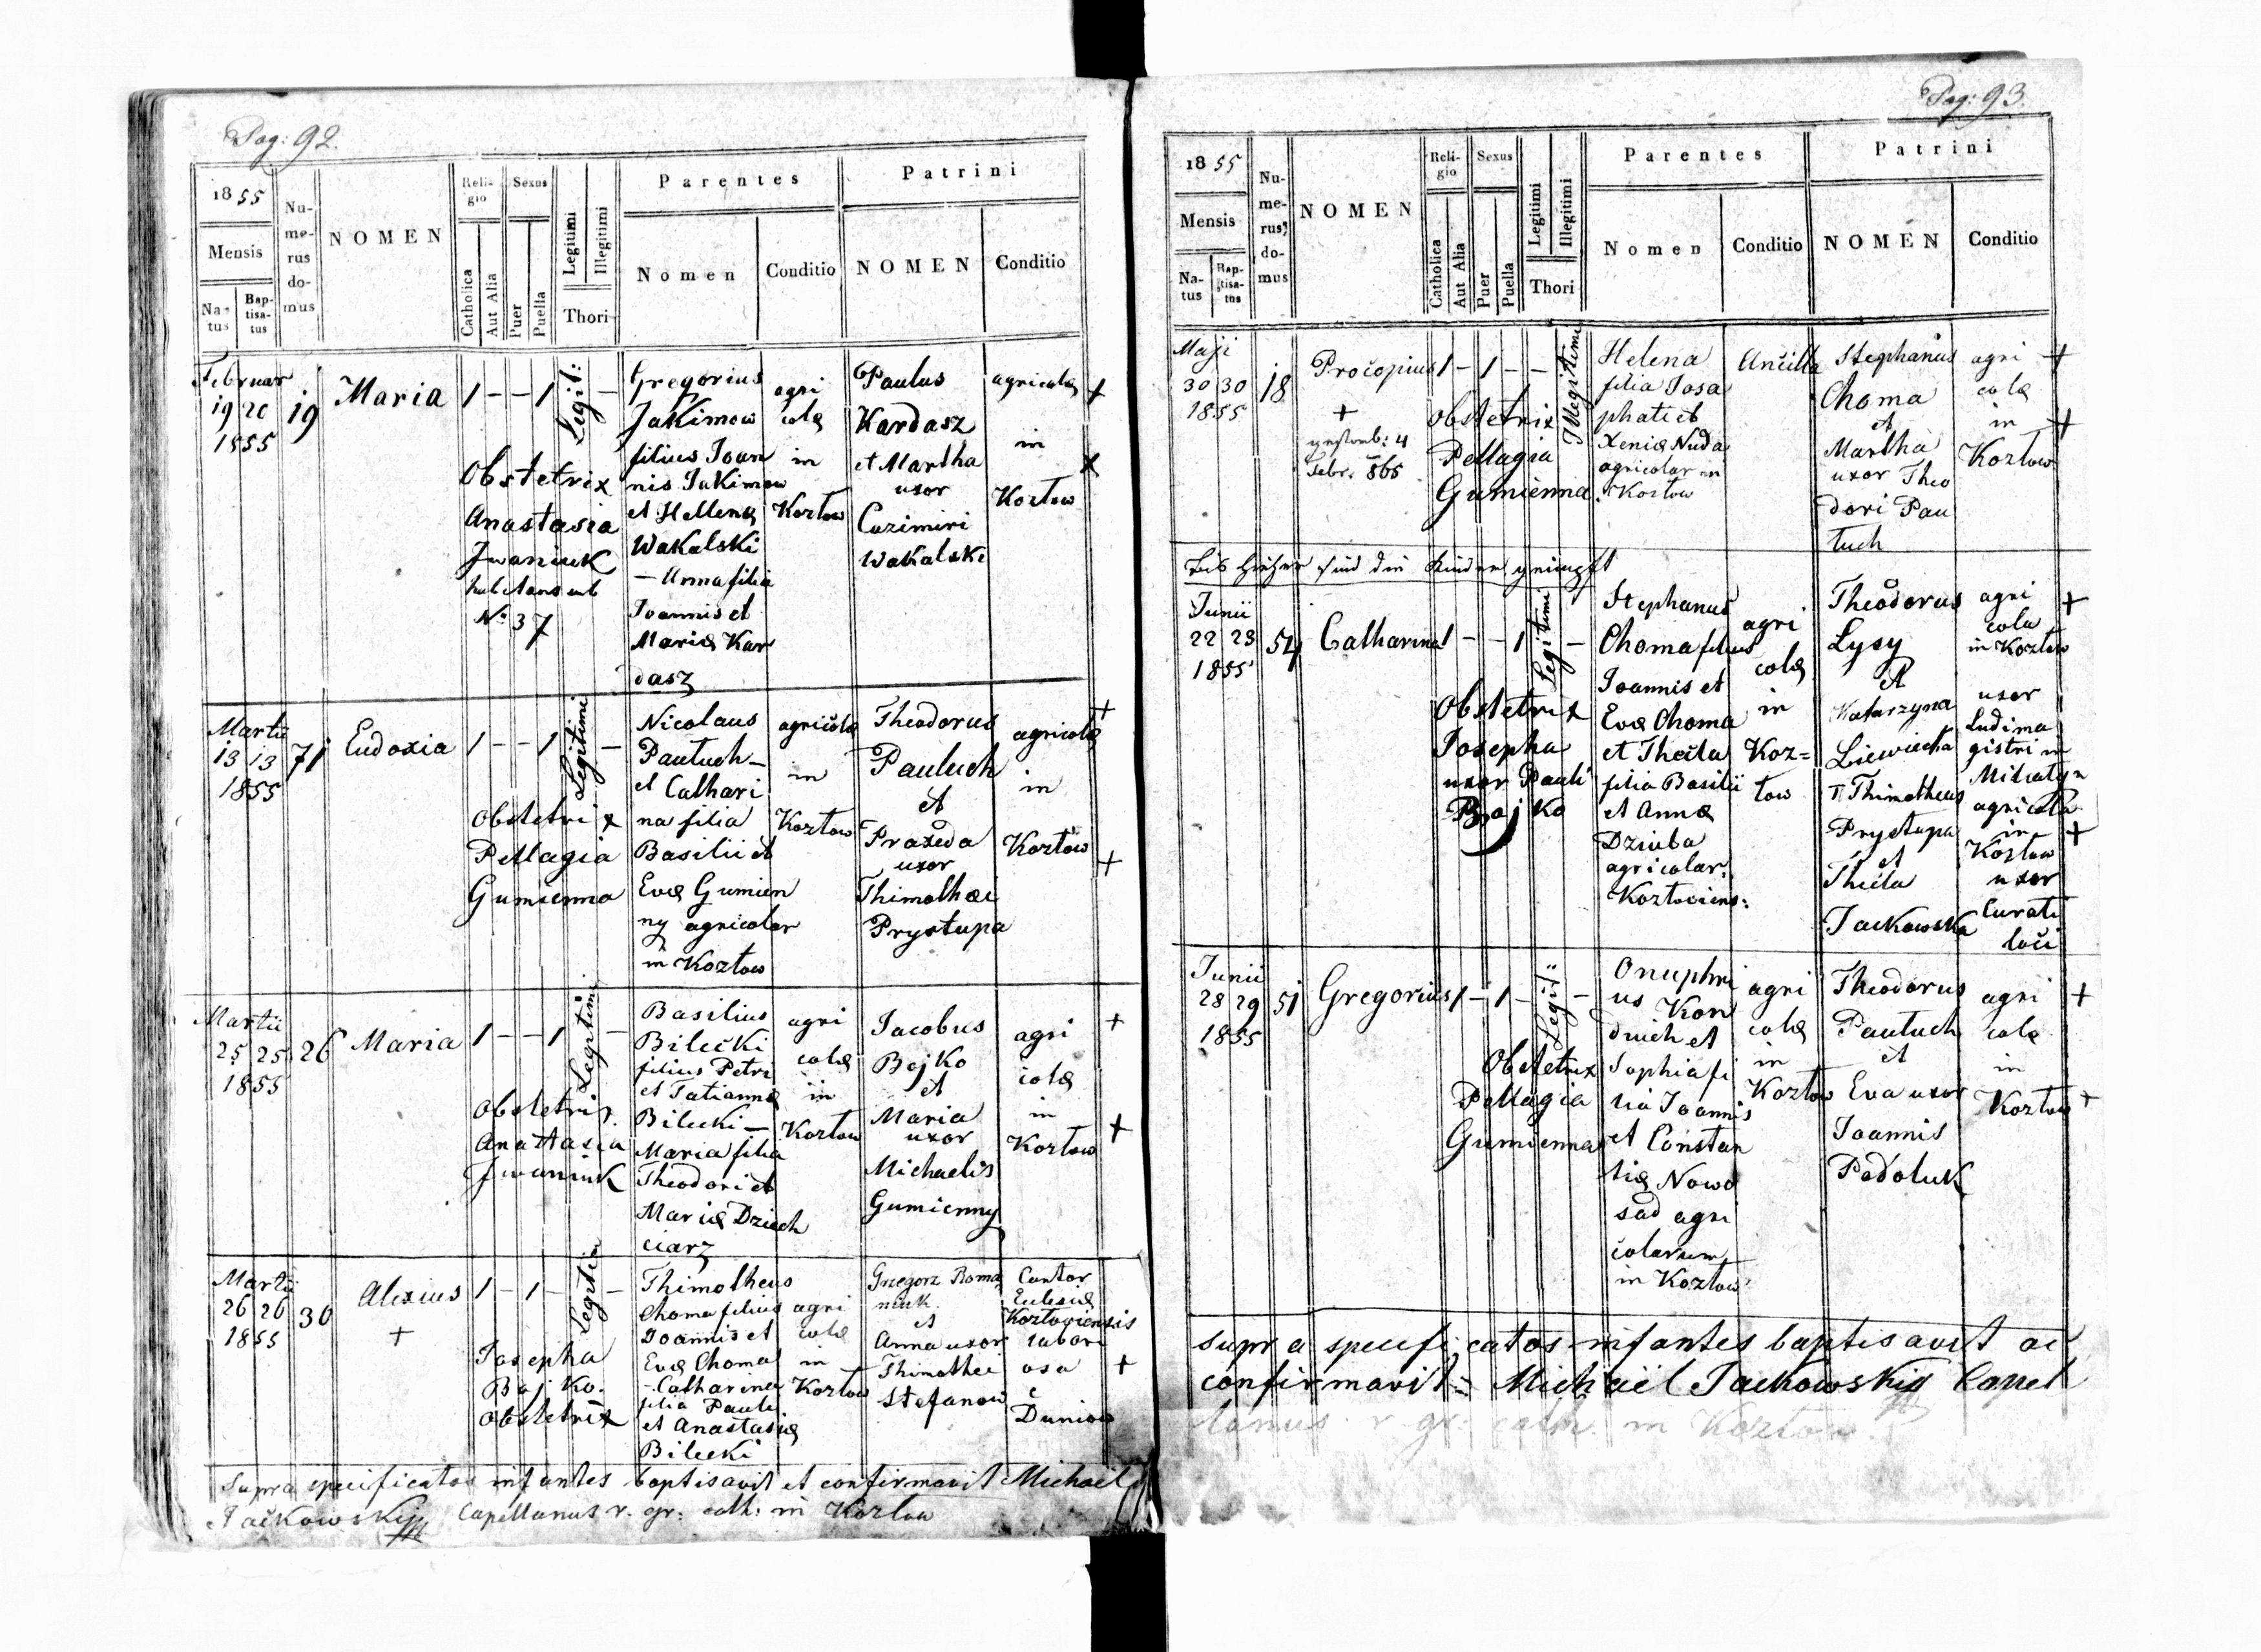 Pag: 92.
1855
Mensis
Na-
tus
Bap-
tisa-
tus
Nu-
me-
rus
do-
mus
NOMEN
Reli-
gio
Catholica
Aut Alia
Sexus
Puer
Puella
Legitimi
Illegitimi
Thori
Parentes
Nomen
Conditio
Patrini
NOMEN
Conditio
Februar
19 20
1855
19
Maria
1 - - 1
Legit:
-
Obstetrix
Anastasia
Jwaniuk
habitans sub
No 37
Gregorius
Jakimow
filius Joan
nis Jakimow
et Hellenæ
Wakalski
- Anna filia
Joannis et
Mariæ Kar
dasz
agri
colæ
in
Kozłow
Paulus
Kardasz
et Martha
uxor
Cazimiri
Wakalski
agricolæ
in
Kozłow
+
x
Martii
13 13
1855
71
Eudoxia
1 - - 1
Legitimi
-
Obstetrix
Pellagia
Gumienna
Nicolaus
Pauluch -
et Cathari
na filia
Basilii et
Evæ Gumien
ny agricolar
in Kozłow
agricolæ
in
Kozłow
Theodorus
Pauluch
et
Praxeda
uxor
Thimothæi
Prystupa
agricolæ
in
Kozłow
+
+
Martii
25 25
1855
26
Maria
1 - - 1
Legitimi
-
Obstetrix
Anastasia
Jwaniuk
Basilius
Bilecki
filius Petri
et Tatiannæ
Bilecki -
Maria filia
Theodori et
Mariæ Dziech
ciarz
agri
colæ
in
Kozłow
Jacobus
Bojko
et
Maria
uxor
Michaelis
Gumienny
agri
colæ
in
Kozłow
+
+
Martii
26 26
1855
30
Alexius
+
1 - 1 -
-
Josepha
Bojko.
Obstetrix
Thimotheus
Choma filius
Joannis et
Evæ Choma
- Catharina
filia Pauli
et Anastasiæ
Bilecki
agri
colæ
in
Kozłow
Grzegorz Roma
niuk.
et
Anna uxor
Thimothei
Stefanow
Cantor
Eclesiæ
Kozłoviensis
labori
osa
Duniow
+
Supra specificatos infantes baptisavit et confirmavit Michaël
Tackowskij Capellanus r. gr: cath: in Kozłow
Pag: 93.
1855
Mensis
Na-
tus
Bap-
tisa-
tus
Nu-
me-
rus
do-
mus
NOMEN
Reli-
gio
Catholica
Aut Alia
Sexus
Puer
Puella
Legitimi
Illegitimi
Thori
Parentes
Nomen
Conditio
Patrini
NOMEN
Conditio
Maji
30 30
1855
18
Procopius
+
gestorb: 4
Febr. 865
1 - 1 - -
Illegitimi
Obstetrix
Pellagia
Gumienna.
Helena
filia Josa
phati et
Xeniæ Nuda
agricolar in
Kozłow
Ancilla
Stephanus
Choma
et
Martha
uxor Theo
dori Pau
luch
agri
colæ
in
Kozłow
+
+
Bis hieher sind die Kinder geimpft
Junii
22 23
1855
54
Catharina
1 - - 1
Legitimi
-
Obstetrix
Josepha
uxor Pauli
Bojko
Stephanus
Choma filius
Joannis et
Evæ Choma
et Thecla
filia Basilii
et Annæ
Dziuba
agricolar.
Kozłoviens:
agri
colæ
in
Koz=
łow
Theodorus
Lysy
et
Katarzyna
Thimotheus
Prystupa
et
Thecla
Tackowska
agri
cola
in Kozłow
uxor
Ludima
gistri in
agricola
in
Kozłow
uxor
Curati
loci
+
+
Junii
28 29
1855
51
Gregorius
1 - 1 -
Legit:
-
Obstetrix
Pellagia
Gumienna
Onuphri
us Kon
druch et
Sophia fi
lia Joannis
et Constan
tiæ Nowo
sad agri
colarum
in Kozłow
agri
colæ
in
Kozłow
Theodorus
Pauluch
et
Eva uxor
Joannis
Podoluk
agri
colæ
in
Kozłow
+
+
Supra specificatos infantes baptisavit ac
confirmavit:- Michaël Tackowskij Capel
lanus r. gr. cath. in Kozłow